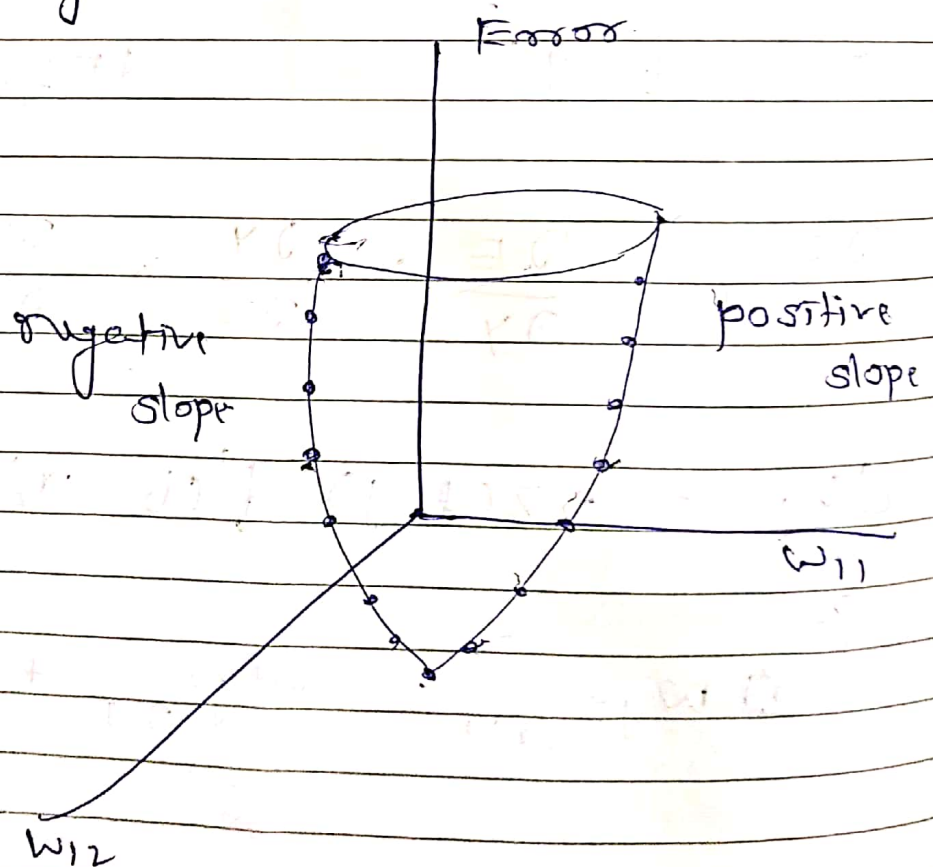 Error
negative
slope
positive
slope
W11
W12